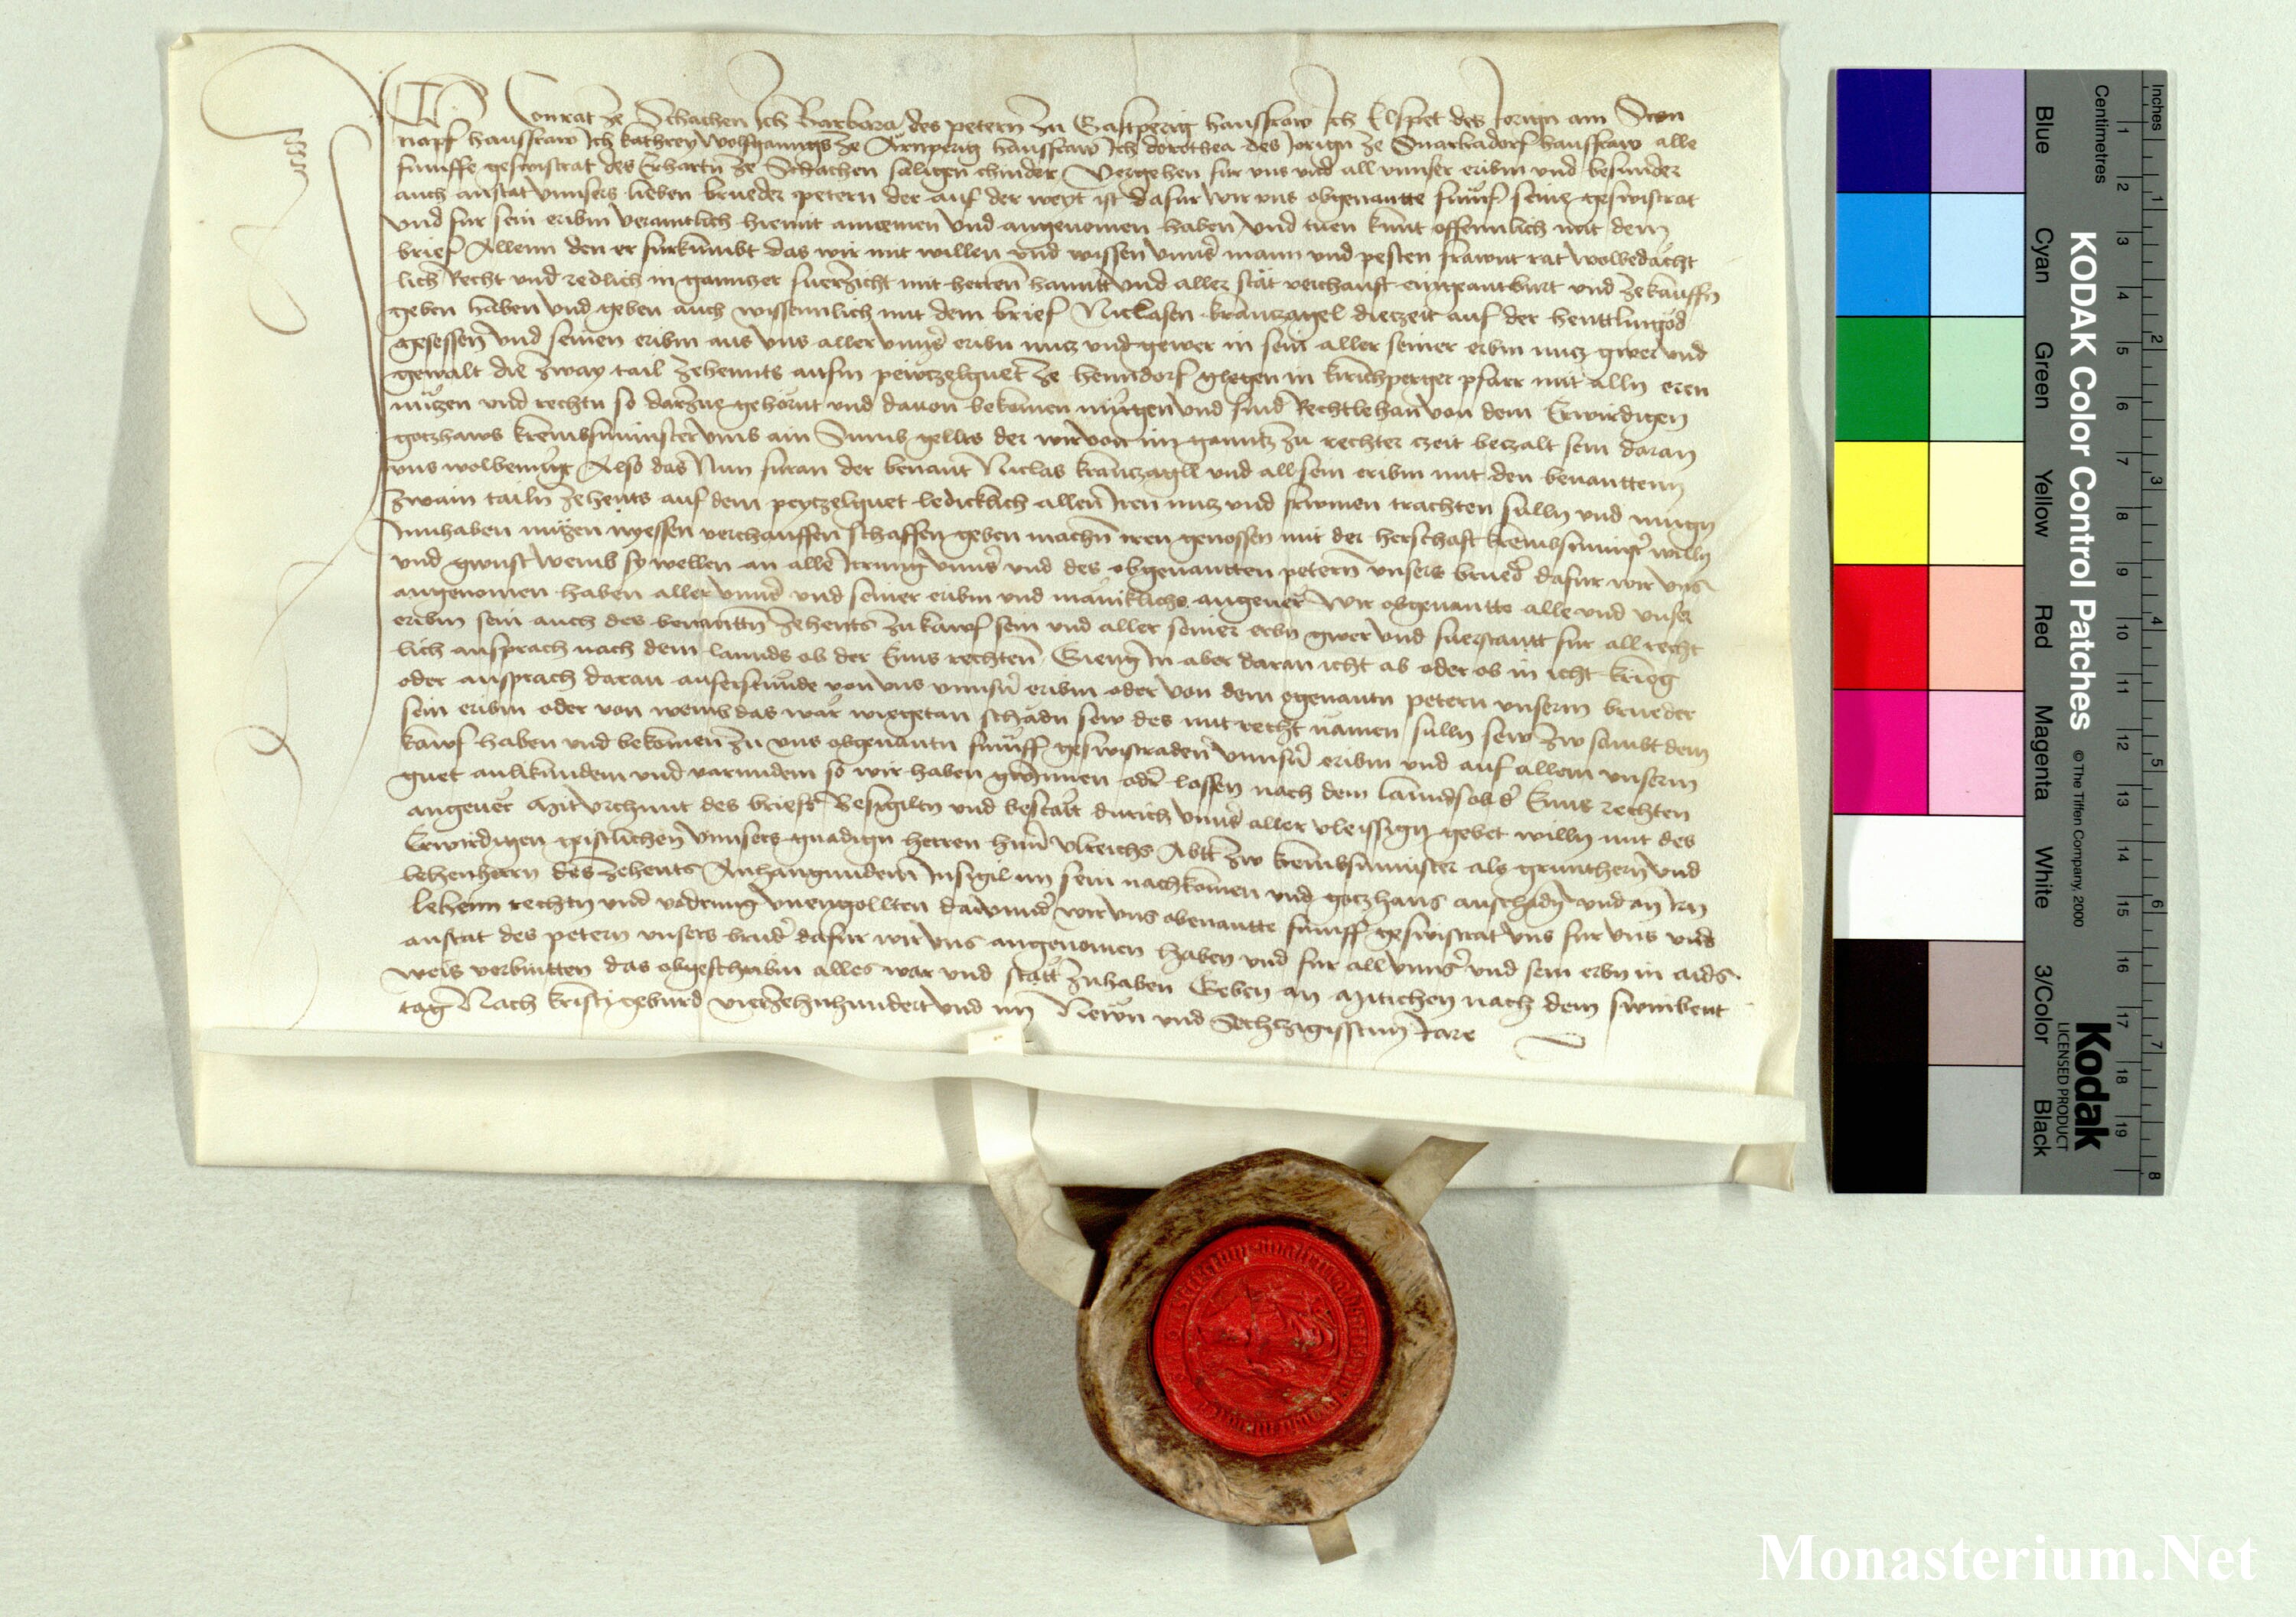 Ich Conrat ze Schachen Ich Barbara des petern zu Gastperig hausfraw Ich Elspet des Jorign am Sten
napf hausfraw Ich kathrey Wolfganngs ze Arnperig hausfraw Ich dorothea des Jorign ze hausfraw alle
funffe geswistrat des Erhartn ze Schachen saligen chinder Vergehen fur uns und all unnser eribm und besunder
auch anstat unnsers lieben brueder petern der auf der weyt ist dafur wir uns obgenantte funf seine geswistrat
und fur sein eribm verantlich hiemit annemen und angenomen haben und tuen kunt offennlich mit dem
brief Allenn den er furkumbt das wir mit willen und wissen unnser mann und pesten frawnt rat wolbedacht
lich Recht und redlich in gannczer fuerzicht mit herren hannt und aller stat verchauft eingeantburt und ze kauffn
geben haben und geben auch wissennlich mit dem brief Niclasen kranczagel dieczeit auf der henttlingod
gesessen und seinen eribm aus uns aller unnser eribn nucz und gewer in sein aller seiner eribm nucz gwer und
gewalt die zway tail zehennts aufm peyczelguet ze henndorf glegen in kirichperger pfarr mit alln eren
nuczen und rechtn so darzue gehornt und dauon bekomen mugen und sind Rechtlehan von dem Erwirdigen
goczhaws krembsmunster umb ain Sumb gellts der wir von im ganntz zu rechter czeit beczalt sein daran
uns wolbenugt Also das Nun furan der benant Niclas kranczagll und all sein eribm mit den benanttenn
zwain tailn zehents auf dem peyczelguet ledicklich allen Iren nucz und frumen trachten sulln und mugn
Innhaben nuczen nyessen verchauffen schaffen geben machn iren genossen mit der herschaft krembsmunster willn
und gunst wemb sy wellen an alle Irrung unnser und des obgenantten petern unsers brueder dafur wir uns
angenomen haben aller unnser und seiner eribm und maniklichs angeuer Wir obgenantte alle und unser
eribm sein auch des benanttn zehents zu kawf sein und aller seiner eribn gwer und fuerstantt fur all recht
lich ansprach nach dem lannds ob der Enns rechten Gieng in aber daran icht ab oder ob in icht krieg
oder ansprach daran auferstunde von uns unnsern eribm oder von dem egenantn petern unserm brueder
sein eribm oder von wemb das war wiegetan schadn sew des mit recht namen sulln sew zw sambt dem
kawf haben und bekomen zu uns obgenantn funff geswistraden unnsern eribm und auf allem unserm
guet anlikundem und varundem so wir haben gwinnen oder lassen nach dem lannds ob der Enns rechten
angeuer Mit urchunt des briefs Besigiltn und bestatt durich unnser aller vleissign gebet willn mit des
Erwirdigen geistlichen unnsers gnadign herren hern Ulreichs Abtt zw krembsmunster als gruntherrn und
lehenherrn des zehents Anhangundem Insigil im sein nachkomen und goczhaus anschadn und an irn
lehenn rechtn und vodrung unengollten darunder wir uns obenantte funff geswistrat uns fur uns und
anstat des petern unsers bruder dafur wir uns angenomen haben und fur all unnser und sein eribn in aids
weis verbintten das obgeschribm alles war und statt zuhaben Geben an Mitichen nach dem sunibent
tag Nach kristi geburd vierzehnhundert und im Newn und Sechczigisstem Jare
KODAK Color Control Patches
© The Tiffen Company, 2000
Kodak
LICENSED PRODUCT
Blue Cyan Green Yellow Red Magenta White 3/Color Black
Centimetres
1 2 3 4 5 6 7 8 9 10 11 12 13 14 15 16 17 18 19
Inches
1 2 3 4 5 6 7 8
Monasterium.Net